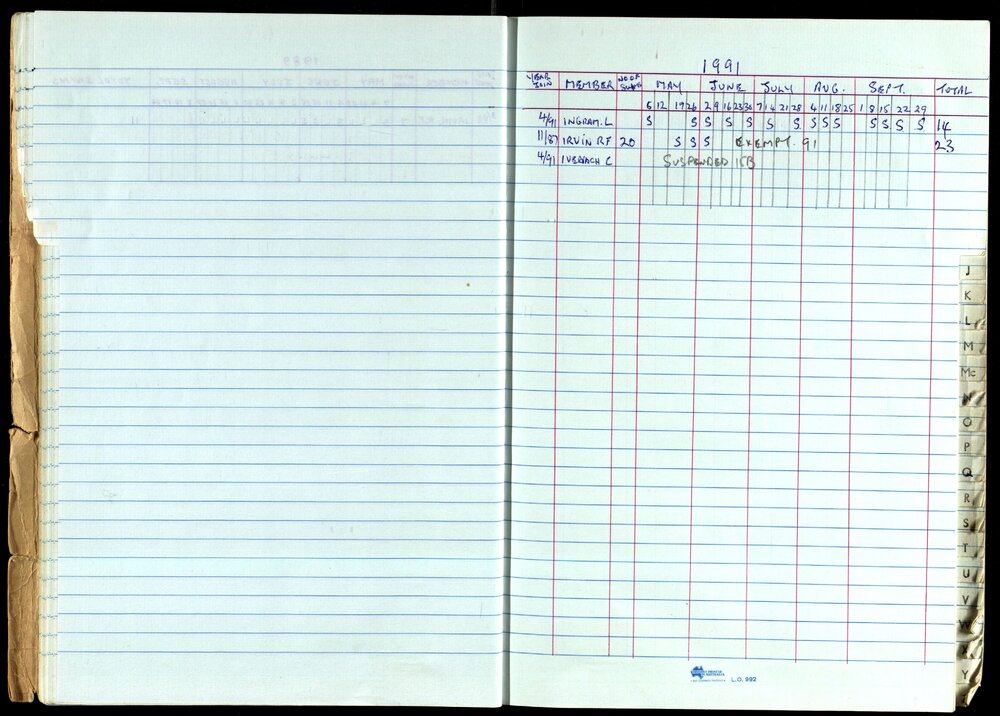 1991
YEAR JOIN MEMBER NO OF SWIMS MAY JUNE JULY AUG. SEPT. TOTAL
5 12 19 26 2 9 16 23 30 7 14 21 28 4 11 18 25 1 8 15 22 29
4/91 INGRAM. L S S S S S S S S S S S S S S 14
11/87 IRVIN RF 20 S S S EXEMPT. 91 23
4/91 C SUSPENDED
J
K
L
M
Mc
N
O
P
Q
R
S
T
U
V
W
X
Y
L.O. 992